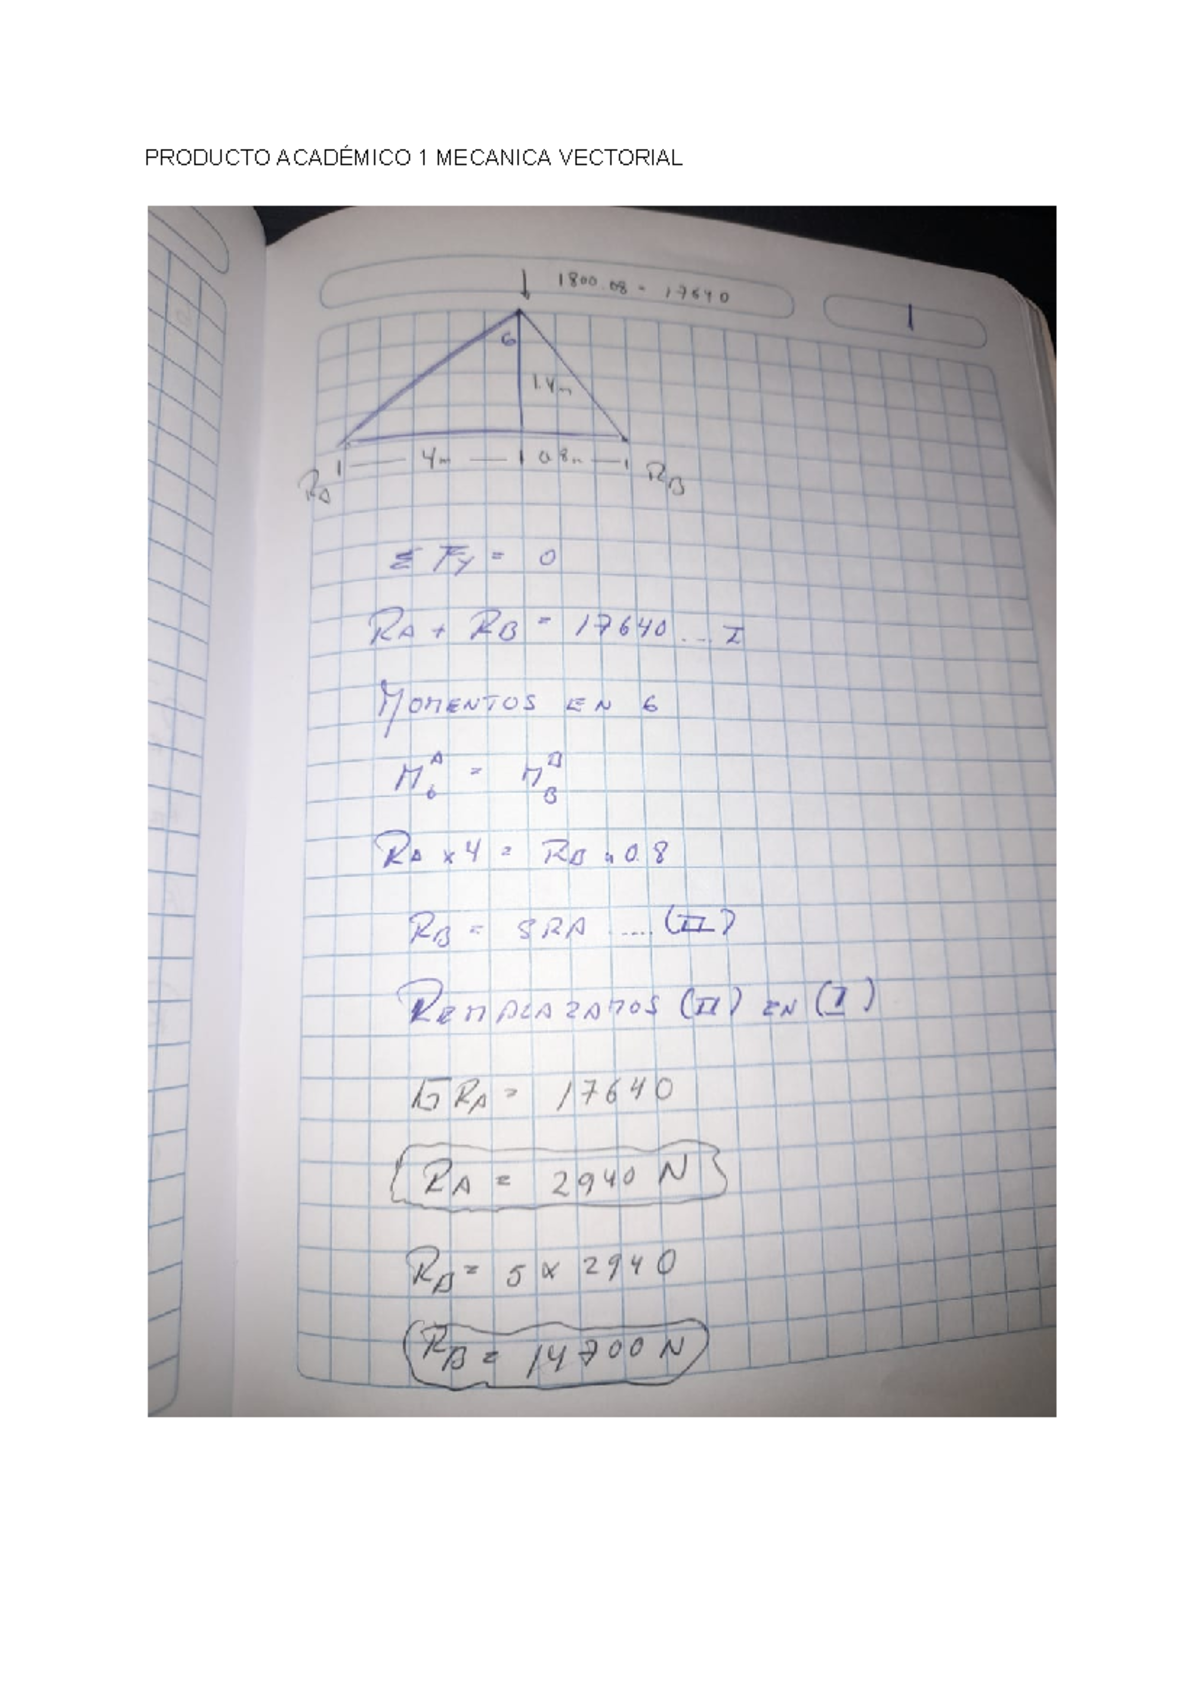 PRODUCTO ACADÉMICO 1 MECANICA VECTORIAL
1800.08 - 17640
1
6
1.4m
4m
0.8m
RA
RB
Σ Fy = 0
RA + RB = 17640 ... I
MOMENTOS EN 6
M A 6 = M B B
RA x 4 = RB x 0.8
RB = 5RA .... (II)
REMPLAZAMOS (II) EN (I)
RA = 17640
RA = 2940 N
RB = 5 x 2940
RB = 14700 N